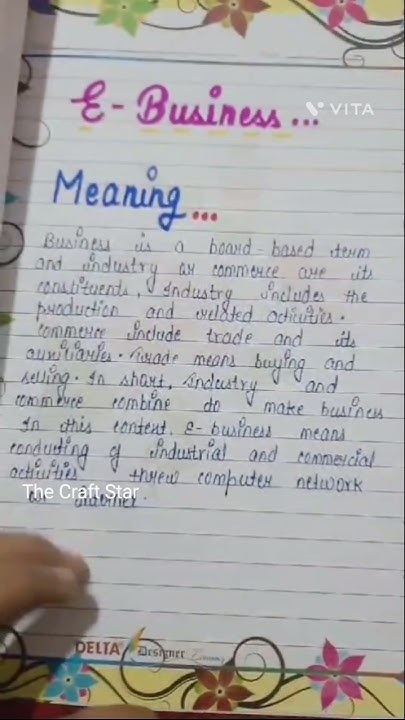 DELTA
E - Business...
VITA
Meaning...
Business is a board-based term
and industry or commerce are its
constituents. Industry includes the
production and related activities.
commerce include trade and its
auxiliaries. Trade means buying and
selling. In short, industry and
commerce combine do make business
In this content. E-business means
conducting of industrial and commercial
activities threw computer network
The Craft Star
DELTA Designer